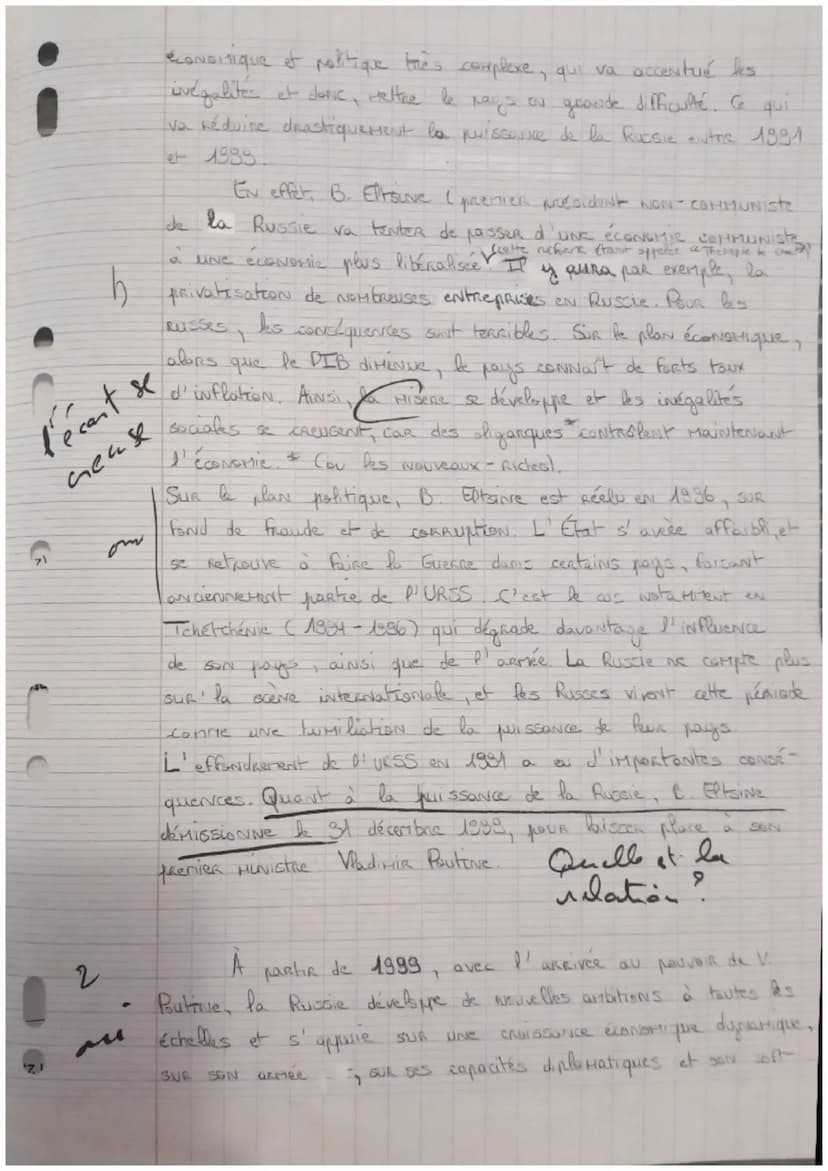 économique et politique très complexe, qui va accentué les
inégalités et donc, mettre le pays en grande difficulté. Ce qui
va réduire drastiquement la puissance de la Russie entre 1991
et 1999.
En effet, B. Eltsine (premier président non-communiste
de la Russie va tenter de passer d'une économie communiste
(cette réforme étant appelée "Thérapie de
à une économie plus libéralisée. Il y aura par exemple, la
h
privatisation de nombreuses entreprises en Russie. Pour les
russes, les conséquences sont terribles. Sur le plan économique,
alors que le PIB diminue, le pays connaît de forts taux
l'écart se
creuse
d'inflation. Ainsi, la misère se développe et les inégalités
sociales se creusent, car des oligarques* contrôlent maintenant
l'économie. * (ou les nouveaux-riches).
Sur le plan politique, B. Eltsine est réélu en 1996, sur
fond de fraude et de corruption. L'État s'avère affaibli, et
se retrouve à faire la Guerre dans certains pays, faisant
anciennement partie de l'URSS. C'est le cas notamment en
Tchétchénie (1994-1996) qui dégrade davantage l'influence
de son pays, ainsi que de l'armée. La Russie ne compte plus
sur la scène internationale, et les Russes vivent cette période
comme une humiliation de la puissance de leur pays.
L'effondrement de l'URSS en 1991 a eu d'importantes consé-
quences. Quant à la puissance de la Russie, B. Eltsine
démissionne le 31 décembre 1999, pour laisser place à son
premier ministre Vladimir Poutine.
Quelle est la
relation ?
2
À partir de 1999, avec l'arrivée au pouvoir de V.
Poutine, la Russie développe de nouvelles ambitions à toutes les
échelles et s'appuie sur une croissance économique dynamique,
sur son armée, sur ses capacités diplomatiques et son soft-